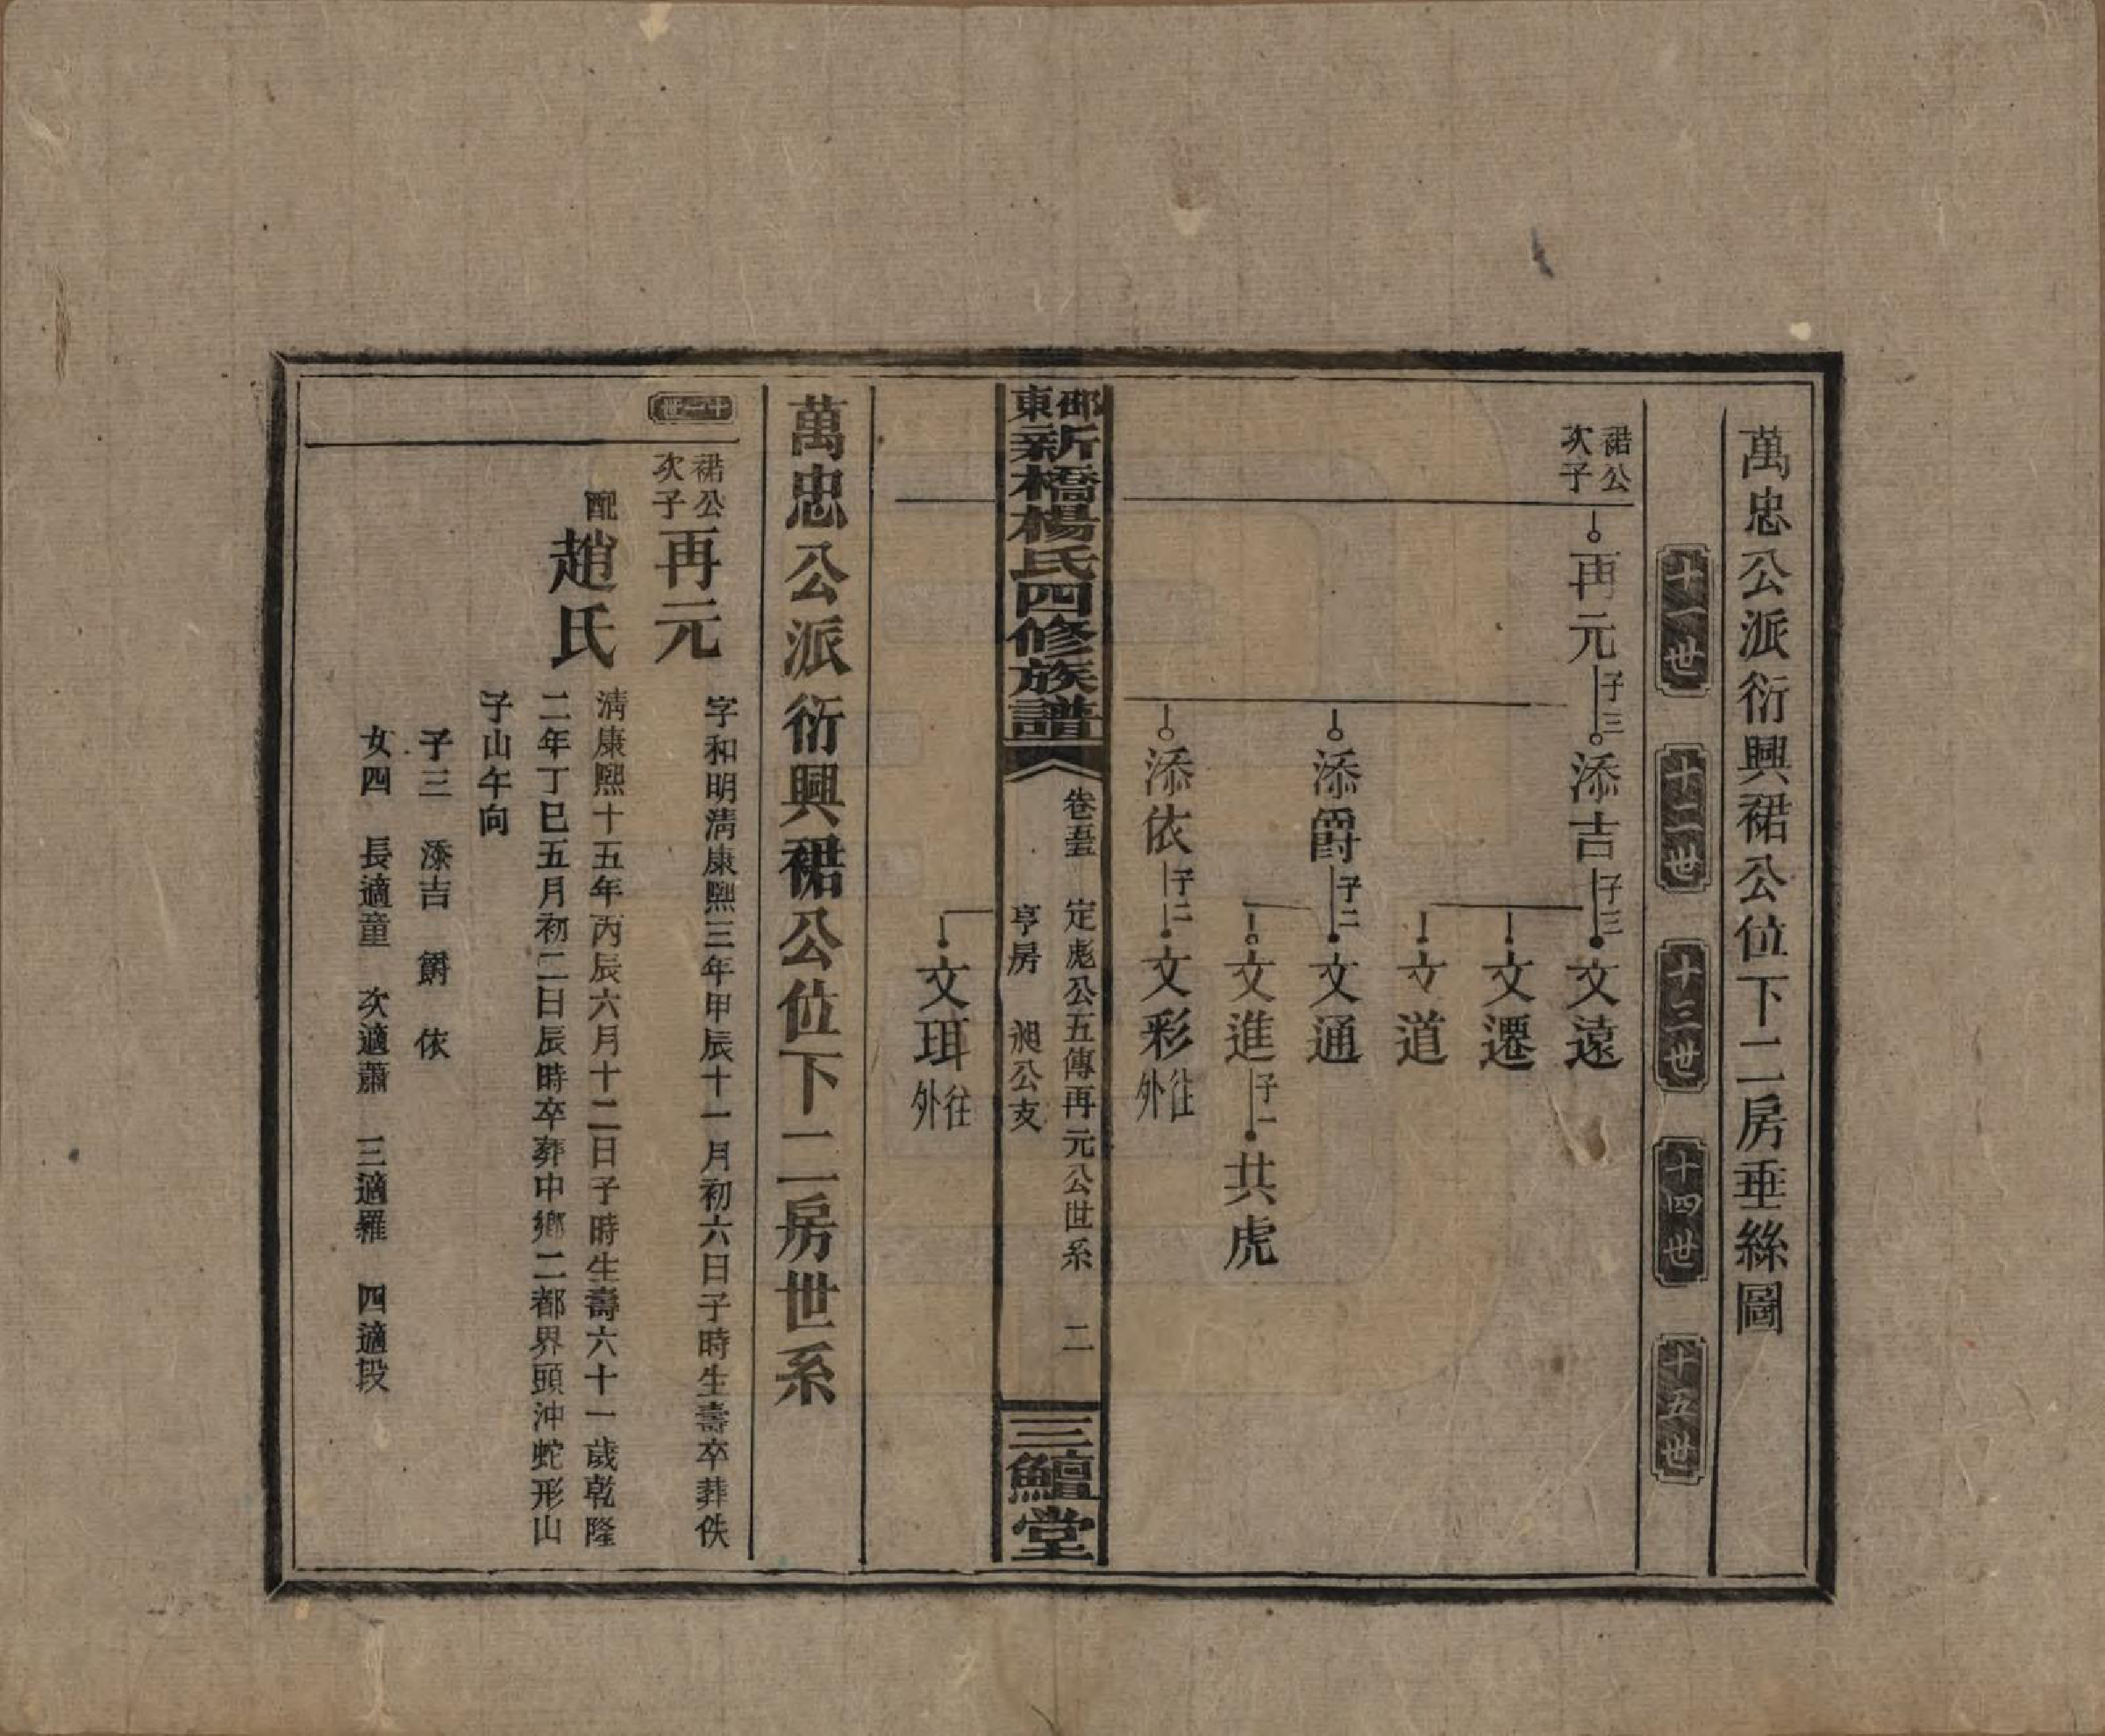 萬忠公派衍興裙公位下二房垂絲圖
十一世
十二世
十三世
十四世
十五世
裙公次子
再元 子三
添吉 子三
文遠
文遷
文道
添爵 子二
文通
文進 子一
共虎
添依 子二
文彩 往外
邵東新橋楊氏四修族譜
卷五 定彪公五傳再元公世系 二
亨房 昶公支
三鱣堂
文珥 往外
萬忠公派衍興裙公位下二房世系
十一世
裙公次子 再元
字和明清康熙三年甲辰十一月初六日子時生壽卒葬佚
配 趙氏
清康熙十五年丙辰六月十二日子時生壽六十一歲乾隆
二年丁巳五月初二日辰時卒葬中鄉二都界頭沖蛇形山
子山午向
子三 添吉 爵 依
女四 長適童 次適蕭 三適羅 四適段